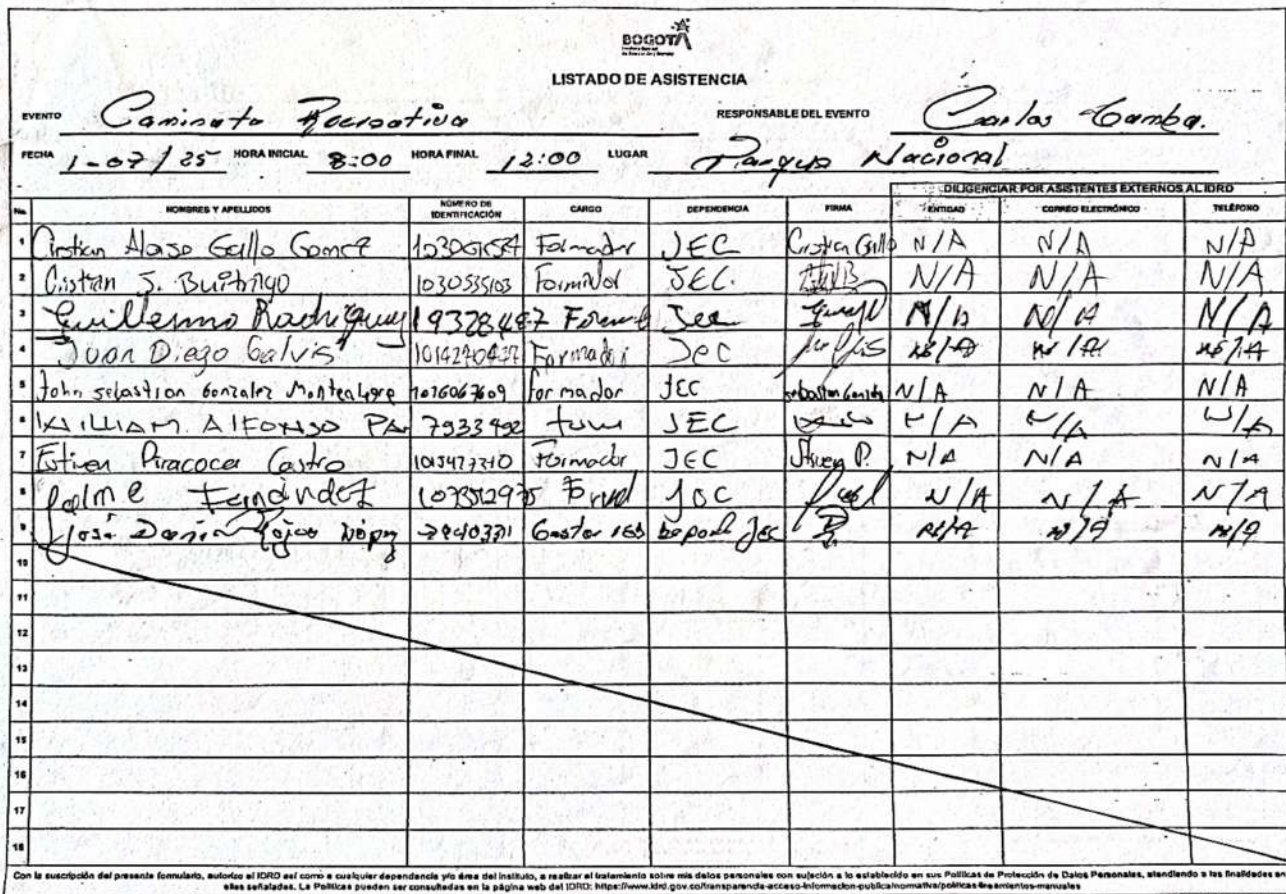 BOGOTÁ
LISTADO DE ASISTENCIA
EVENTO Caminata Recreativa RESPONSABLE DEL EVENTO Carlos Gamba.
FECHA 1-07/25 HORA INICIAL 8:00 HORA FINAL 12:00 LUGAR Parque Nacional
DILIGENCIAR POR ASISTENTES EXTERNOS AL IDRD
No. NOMBRES Y APELLIDOS NÚMERO DE IDENTIFICACIÓN CARGO DEPENDENCIA FIRMA ENTIDAD CORREO ELECTRÓNICO TELÉFONO
1 Cristian Alonso Gallo Gomez Formador JEC Cristian Gallo N/A N/A N/A
2 Cristian S. Buitrago 1030535103 Formador JEC. N/A N/A N/A
3 Guillermo Rodriguez 19328487 Jec N/A N/A N/A
4 Juan Diego Galvis Formador Jec N/A N/A N/A
5 John sebastian Gonzalez Montealegre 1016067609 formador JEC sebastian Gonzalez N/A N/A N/A
6 WILLIAM. AlFONSO 7933492 JEC N/A N/A N/A
7 Estiven Piracoca Castro Formador JEC Stiven P. N/A N/A N/A
8 Fernández N/A N/A N/A
9 José López Gestor Jec N/A N/A N/A
10
11
12
13
14
15
16
17
18
Con la suscripción del presente formulario, autorizo al IDRD así como a cualquier dependencia y/o área del instituto, a realizar el tratamiento sobre mis datos personales con sujeción a lo establecido en sus Políticas de Protección de Datos Personales, atendiendo a las finalidades
ellas señaladas. La Políticas pueden ser consultadas en la página web del IDRD: